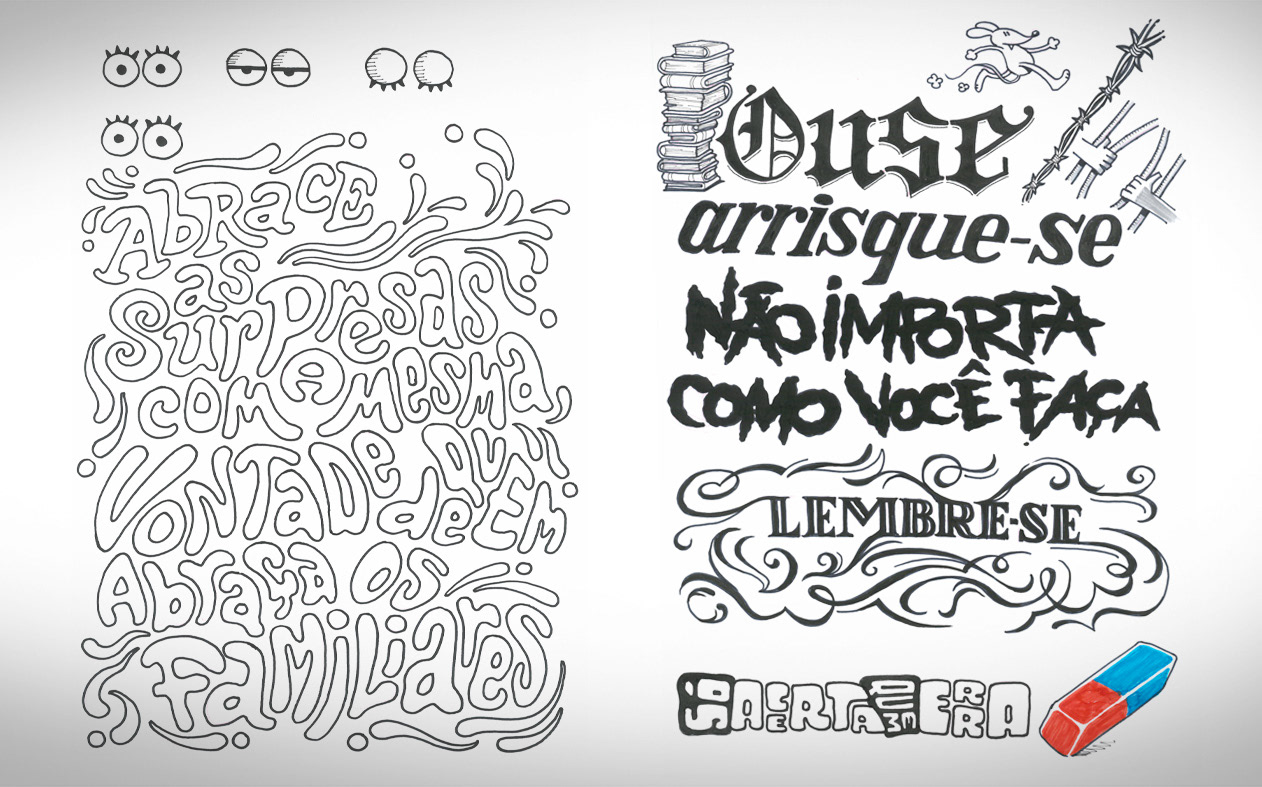 ABRACE
as
surpresas
com A mesma
VONTADE de QUEM
Abraça os
FAMILIARES
Ouse
arrisque-se
NÃO IMPORTA
COMO VOCÊ FAÇA
LEMBRE-SE
SÓ ACERTA QUEM ERRA